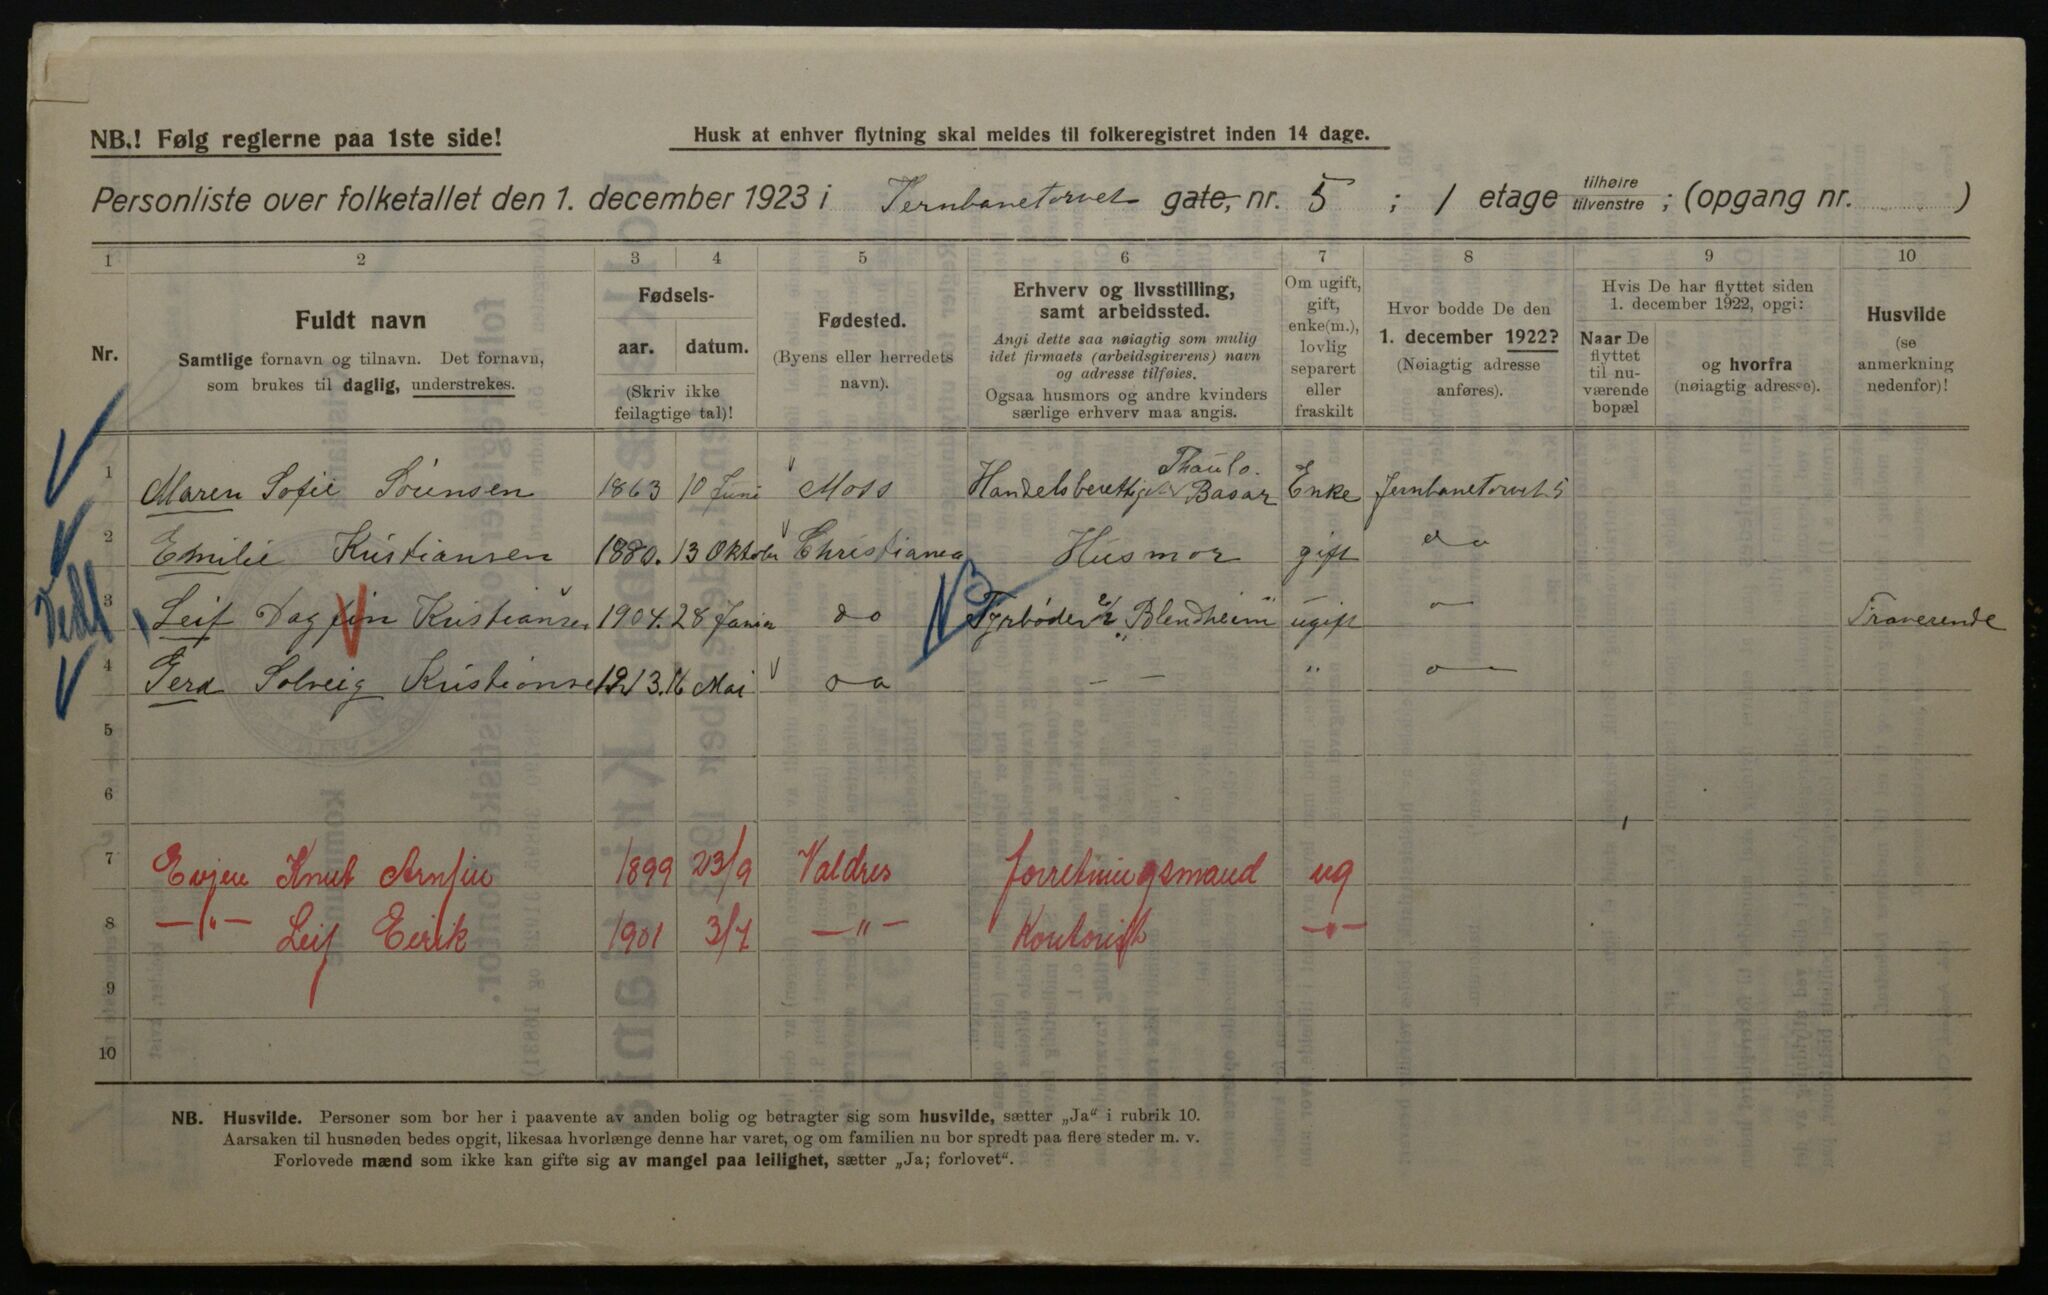 NB.! Følg reglerne paa 1ste side!
Husk at enhver flytning skal meldes til folkeregistret inden 14 dage.
Personliste over folketallet den 1. december 1923 i Jernbanetorvet gate, nr. 5 ; 1 etage tilhøire tilvenstre ; (opgang nr. )
1 2 3 4 5 6 7 8 9 10
Nr.
Fuldt navn
Samtlige fornavn og tilnavn. Det fornavn,
som brukes til daglig, understrekes.
Fødsels-
aar. datum.
(Skriv ikke
feilagtige tal)!
Fødested.
(Byens eller herredets
navn).
Erhverv og livsstilling,
samt arbeidssted.
Angi dette saa nøiagtig som mulig
idet firmaets (arbeidsgiverens) navn
og adresse tilføies.
Ogsaa husmors og andre kvinders
særlige erhverv maa angis.
Om ugift,
gift,
enke(m.),
lovlig
separert
eller
fraskilt
Hvor bodde De den
1. december 1922?
(Nøiagtig adresse
anføres).
Hvis De har flyttet siden
1. december 1922, opgi:
Naar De
flyttet
til nu-
værende
bopæl
og hvorfra
(nøiagtig adresse).
Husvilde
(se
anmerkning
nedenfor)!
1 Maren Sofie Sörensen 1863 10 Juni Moss Handelsberettiget Thaulo. Basar Enke Jernbanetorvet 5
2 Emilie Kristiansen 1880. 13 Oktober Christiania Husmor gift do
3 Leif Dagfin Kristiansen 1904. 28 Januar do Fyrbøder "Blendheim" ugift
4 Gerd Solveig Kristiansen 1913. 16 Mai do — — "
5
6
7 Evjen Knut Arnfin 1899 23/9 Valdres forretningsmand ug
8 —"— Leif Eirik 1901 3/7 —"— Kontorist —"—
9
10
NB. Husvilde. Personer som bor her i paavente av anden bolig og betragter sig som husvilde, sætter „Ja" i rubrik 10.
Aarsaken til husnøden bedes opgit, likesaa hvorlænge denne har varet, og om familien nu bor spredt paa flere steder m. v.
Forlovede mænd som ikke kan gifte sig av mangel paa leilighet, sætter „Ja; forlovet".